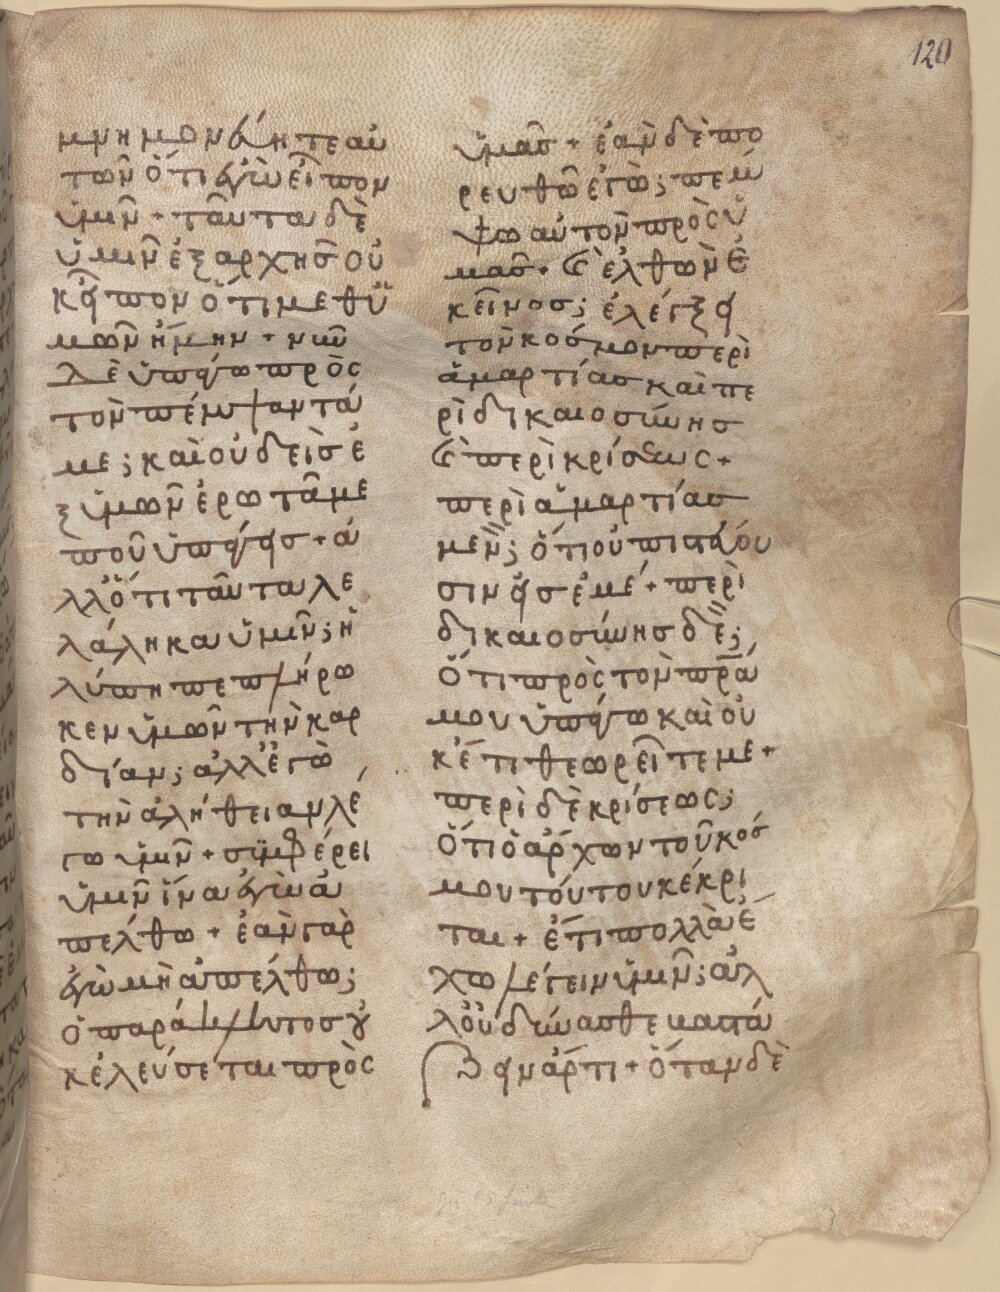 120
μνημονεύητε αὐ
τῶν ὅτι ἐγὼ εἶπον
ὑμῖν + ταῦτα δὲ
ὑμῖν ἐξ αρχῆσ οὐ
κ εἶπον ὅτι μεθ ὑ
μῶν ἤμην + νῦν
δὲ ὑπάγω πρὸς
τὸν πέμψαντά
με; καὶ οὐδεὶσ ἐ
ξ ὑμῶν ἐρωτᾶ με
ποῦ ὑπάγεισ + ἀ
λλ ὅτι ταῦτα λε
λάληκα ὑμῖν; ἡ
λύπη πεπλήρω
κεν ὑμῶν τὴν καρ
δίαν; ἀλλ ἐγὼ
τὴν ἀλήθειαν λέ
γω ὑμῖν + συμφέρει
ὑμῖν ἵνα ἐγὼ ἀ
πέλθω + ἐὰν γὰρ
ἐγὼ μὴ ἀπέλθω;
ὁ παράκλητοσ οὐ
κ ἐλεύσεται πρὸς
ὑμᾶσ + ἐὰν δὲ πο
ρευθῶ ἐγὼ; πέμ
ψω αὐτὸν πρὸς ὑ
μᾶσ + ϗ ἐλθὼν ἐ
κεῖνοσ; ἐλέγξει
τὸν κόσμον περὶ
ἁμαρτίασ καὶ πε
ρὶ δικαιοσύνησ
ϗ περὶ κρίσεως +
περὶ ἁμαρτίασ
μὲν; ὅτι οὐ πιστεύου
σιν εἰσ ἐμέ + περὶ
δικαιοσύνησ δὲ;
ὅτι πρὸς τὸν πρ̅α
μου ὑπάγω καὶ οὐ
κέτι θεωρεῖτε με +
περὶ δὲ κρίσεως;
ὅτι ὁ ἄρχων τοῦ κόσ
μου τούτου κέκρι
ται + ἔτι πολλὰ ἔ
χω λέγειν ὑμῖν; ἀλ
λ οὐ δύνασθε
ειν ἄρτι + ὅταν δὲ